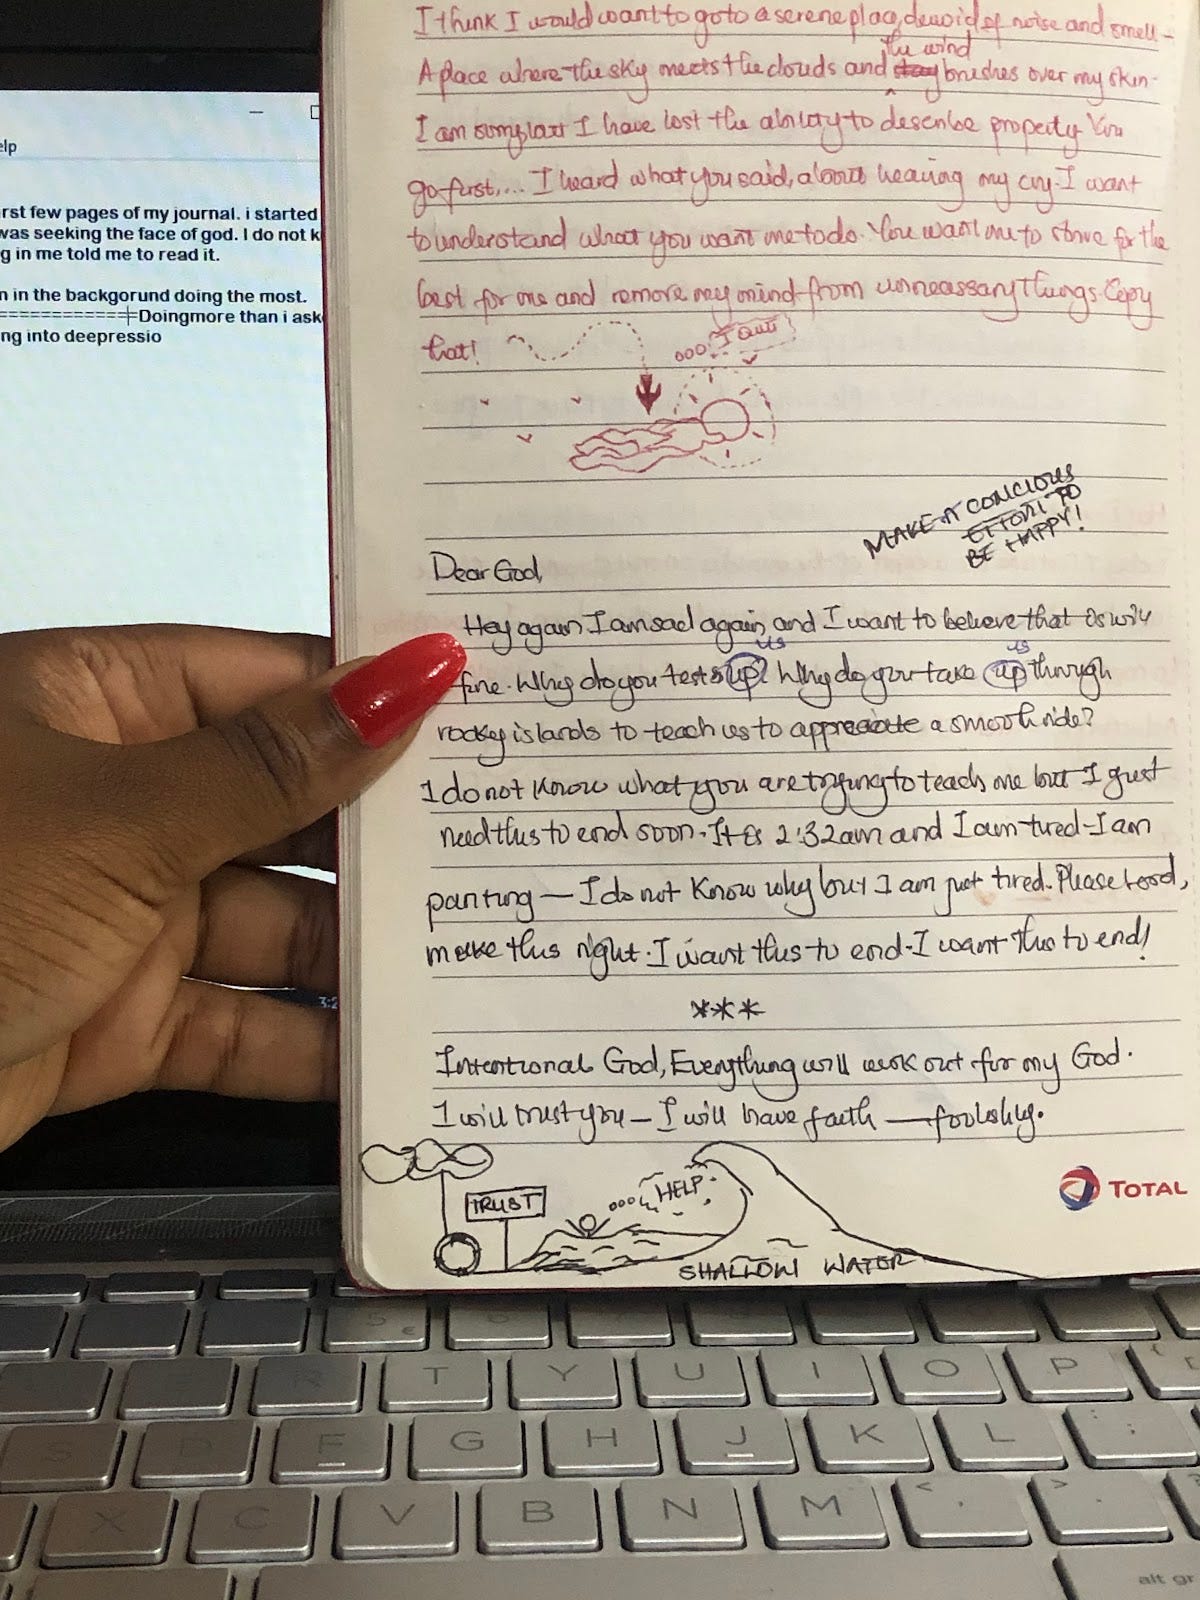 elp
rst few pages of my journal. i started
was seeking the face of god. I do not k
g in me told me to read it.
n in the backgorund doing the most.
============Doingmore than i ask
ng into deepressio
I think I would want to go to a serene place, devoid of noise and smell-
the wind
A place where the sky meets the clouds and brushes over my skin.
I am sorry last I have lost the ability to describe properly. You
go first,... I heard what you said, about hearing my cry. I want
to understand what you want me to do. You want me to strive for the
best for me and remove my mind from unneassary things. Copy
that!
ooo I quit
MAKE A CONCIOUS
EFFORT TO
BE HAPPY!
Dear God,
Hey again I am sad again, and I want to believe that is will
us us
fine. Why do you tests up? Why do you take up through
rocky islands to teach us to appreciate a smooth ride?
I do not know what you are trying to teach me but I just
need this to end soon. It is 2:32am and I am tired - I am
panting — I do not know why but I am just tired. Please Lord,
make this right. I want this to end. I want this to end!
***
Intentional God, Everything will work out for my God.
I will trust you — I will have faith — foolishly.
TRUST
ooo HELP
SHALLOW WATER
TOTAL
3:2
5 € 6 7 8 9
E R T Y U I O P
S D F G H J K L
X C V B N M < , > .
alt gr